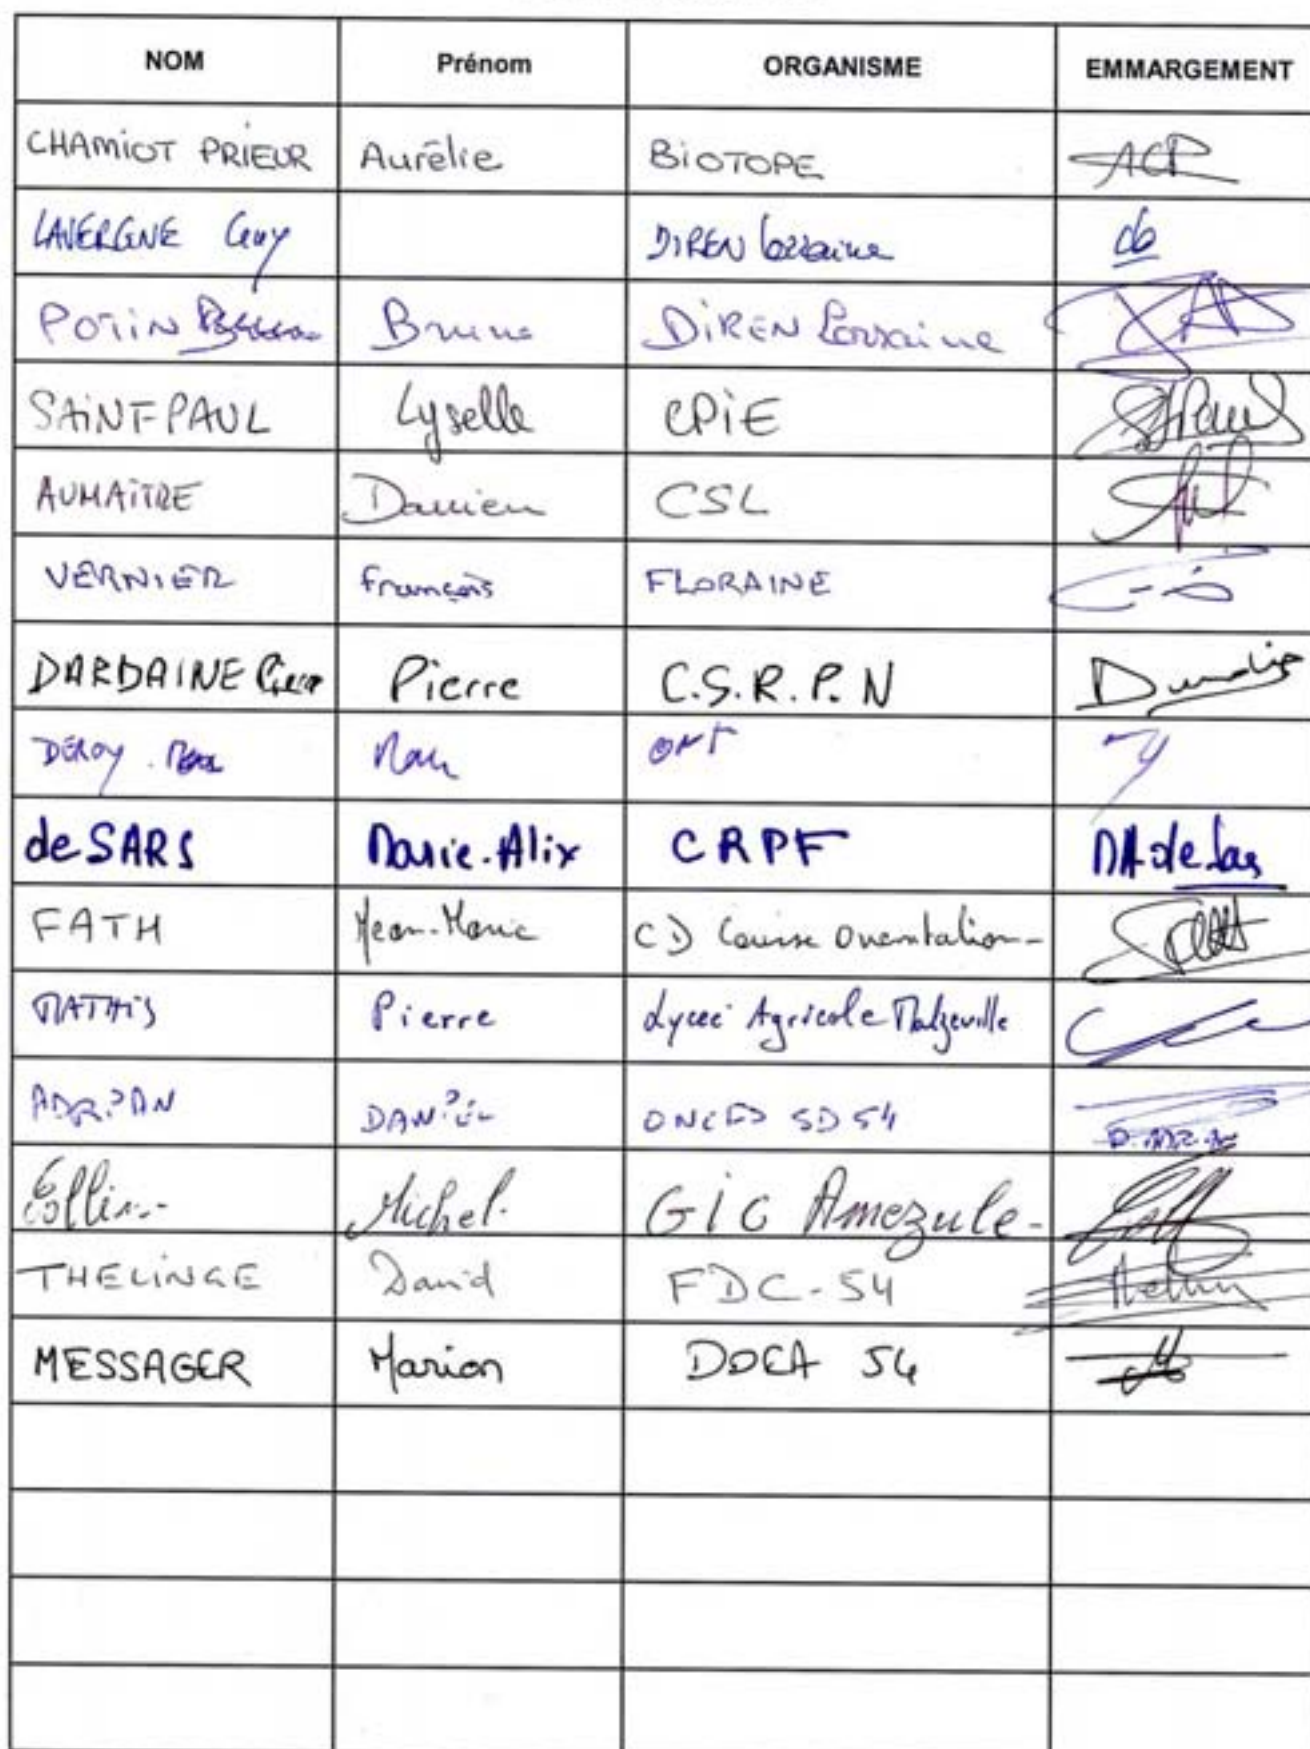 NOM Prénom ORGANISME EMMARGEMENT
CHAMIOT PRIEUR Aurélie BIOTOPE ACP
LAVERGNE Guy DIREN Lorraine
POTIN Bruno DIREN Lorraine
SAINT-PAUL Lyselle CPIE StPaul
AUMAITRE Damien CSL
VERNIER François FLORAINE
DARDAINE Pierre Pierre C.S.R.P.N
DEROY Max
de SARS Marie-Alix CRPF MA de Sars
FATH Jean-Marie CD Course Orientation
MATHIS Pierre Lycée Agricole Malzeville
ADRIAN DANIEL ONCFS SD 54
Collin Michel. GIC Amezule
THELINGE David FDC-54
MESSAGER Marion DDEA 54